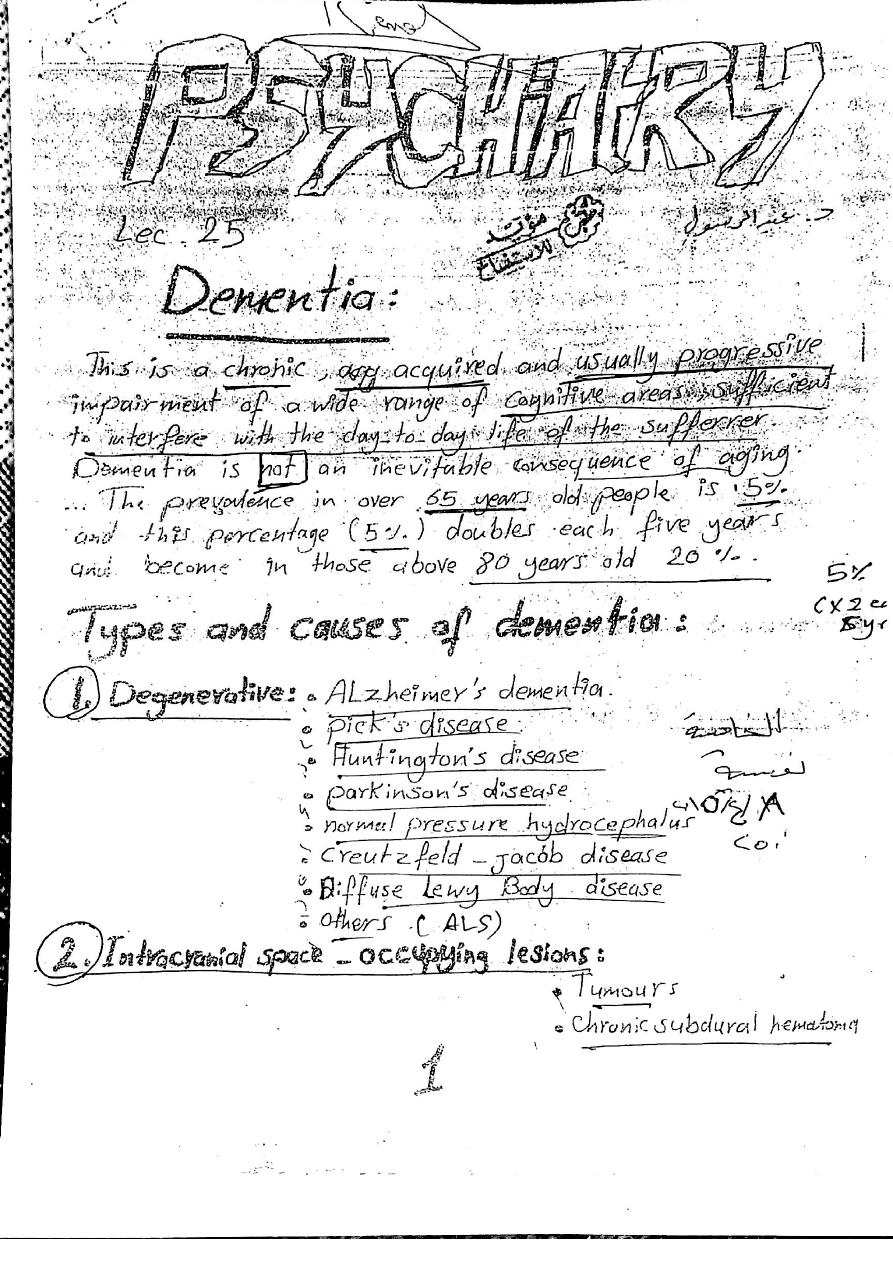 PSYCHIATRY
Lec. 25
مؤيد
للاستنساخ
د. عبدالرسول
Dementia:
This is a chronic, acquired and usually progressive
impairment of a wide range of cognitive areas sufficient
to interfere with the day to day life of the sufferrer.
Dementia is not an inevitable consequence of aging.
... The prevalence in over 65 years old people is 5%
and this percentage (5%) doubles each five years
and become in those above 80 years old 20%.
5%
(x2
5yr
Types and causes of dementia:
1. Degenerative: • ALzheimer's dementia.
• pick's disease
• Huntington's disease
• parkinson's disease
• normal pressure hydrocephalus
• Creutzfeld - jacob disease
• Diffuse Lewy Body disease
• others (ALS)
2. Intracranial space - occupying lesions:
• Tumours
• Chronic subdural hematoma
1